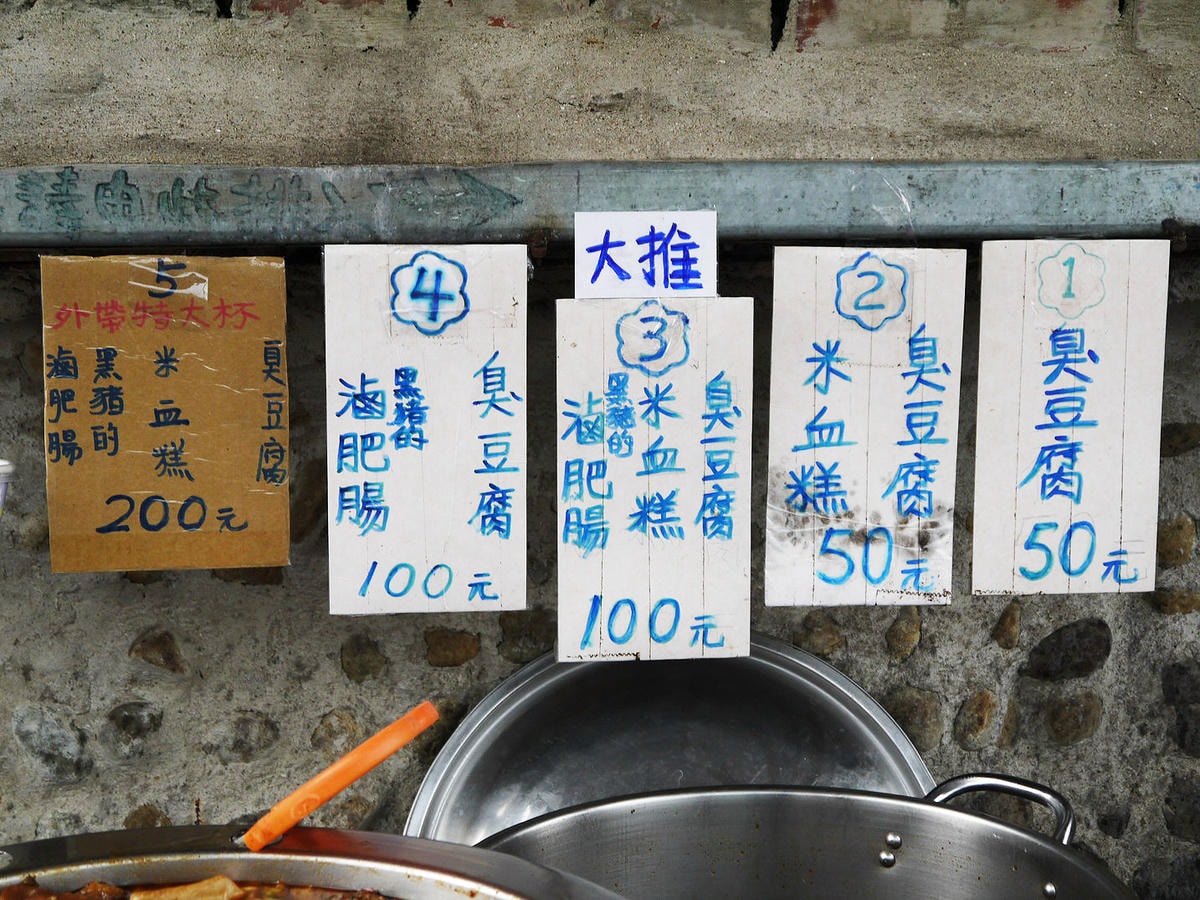 請由此排
1
臭豆腐
50元
2
臭豆腐
米血糕
50元
大推
3
臭豆腐
米血糕
黑豬的
滷肥腸
100元
4
臭豆腐
黑豬的
滷肥腸
100元
5
外帶特大杯
臭豆腐
米血糕
黑豬的
滷肥腸
200元